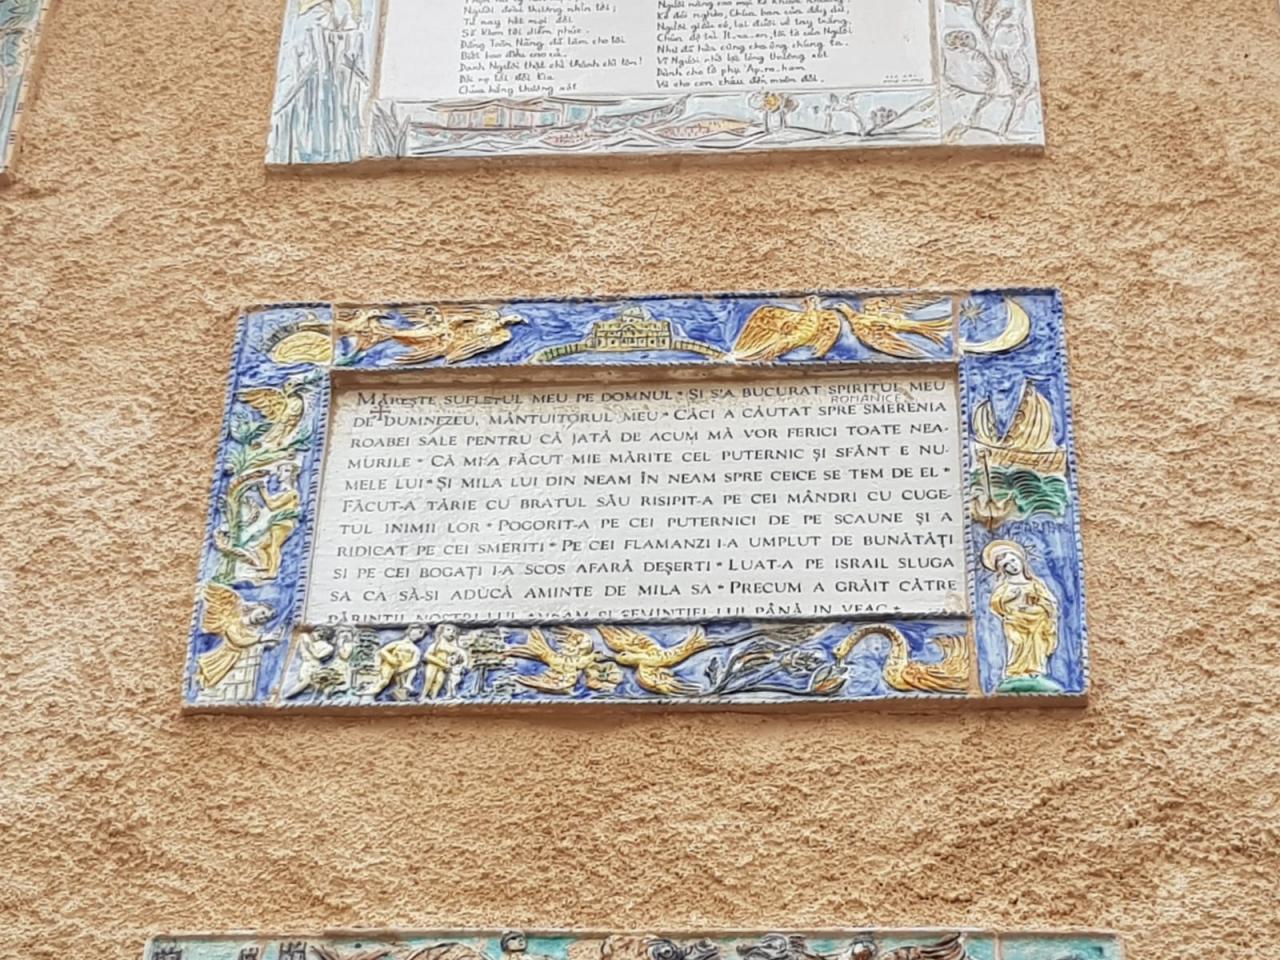 Người đoái thương nhìn tới;
Từ nay hết mọi đời
Sẽ khen tôi diễm phúc.
Đấng Toàn Năng đã làm cho tôi
Biết bao điều cao cả.
Danh Người thật chí thánh chí tôn!
Đời nọ tới đời kia
Chúa hằng thương xót
Kẻ đói nghèo, Chúa ban của đầy dư,
Người giàu có, lại đuổi về tay trắng.
Chúa độ trì Ít-ra-en, tôi tớ của Người
Như đã hứa cùng cha ông chúng ta.
Vì Người nhớ lại lòng thương xót
Dành cho tổ phụ Áp-ra-ham
Và cho con cháu đến muôn đời.
MĂREȘTE SUFLETUL MEU PE DOMNUL • ȘI S'A BUCURAT SPIRITUL MEU
ROMANICE
DE DUMNEZEU, MÂNTUITORUL MEU • CĂCI A CĂUTAT SPRE SMERENIA
ROABEI SALE PENTRU CĂ JATĂ DE ACUM MĂ VOR FERICI TOATE NEA-
MURILE • CĂ MI-A FĂCUT MIE MĂRITE CEL PUTERNIC ȘI SFÂNT E NU-
MELE LUI • ȘI MILA LUI DIN NEAM ÎN NEAM SPRE CEICE SE TEM DE EL •
FĂCUT-A TĂRIE CU BRATUL SĂU RISIPIT-A PE CEI MÂNDRI CU CUGE-
TUL INIMII LOR • POGORIT-A PE CEI PUTERNICI DE PE SCAUNE ȘI A
RIDICAT PE CEI SMERITI • PE CEI FLAMANZI I-A UMPLUT DE BUNĂTĂȚI
SI PE CEI BOGAȚI I-A SCOS AFARĂ DEȘERTI • LUAT-A PE ISRAIL SLUGA
SA CA SĂ-SI ADUCĂ AMINTE DE MILA SA • PRECUM A GRĂIT CĂTRE
PĂRINTII NOSTRI LUI AVRAM SI SEMINTIEI LUI PÂNĂ IN VEAC •